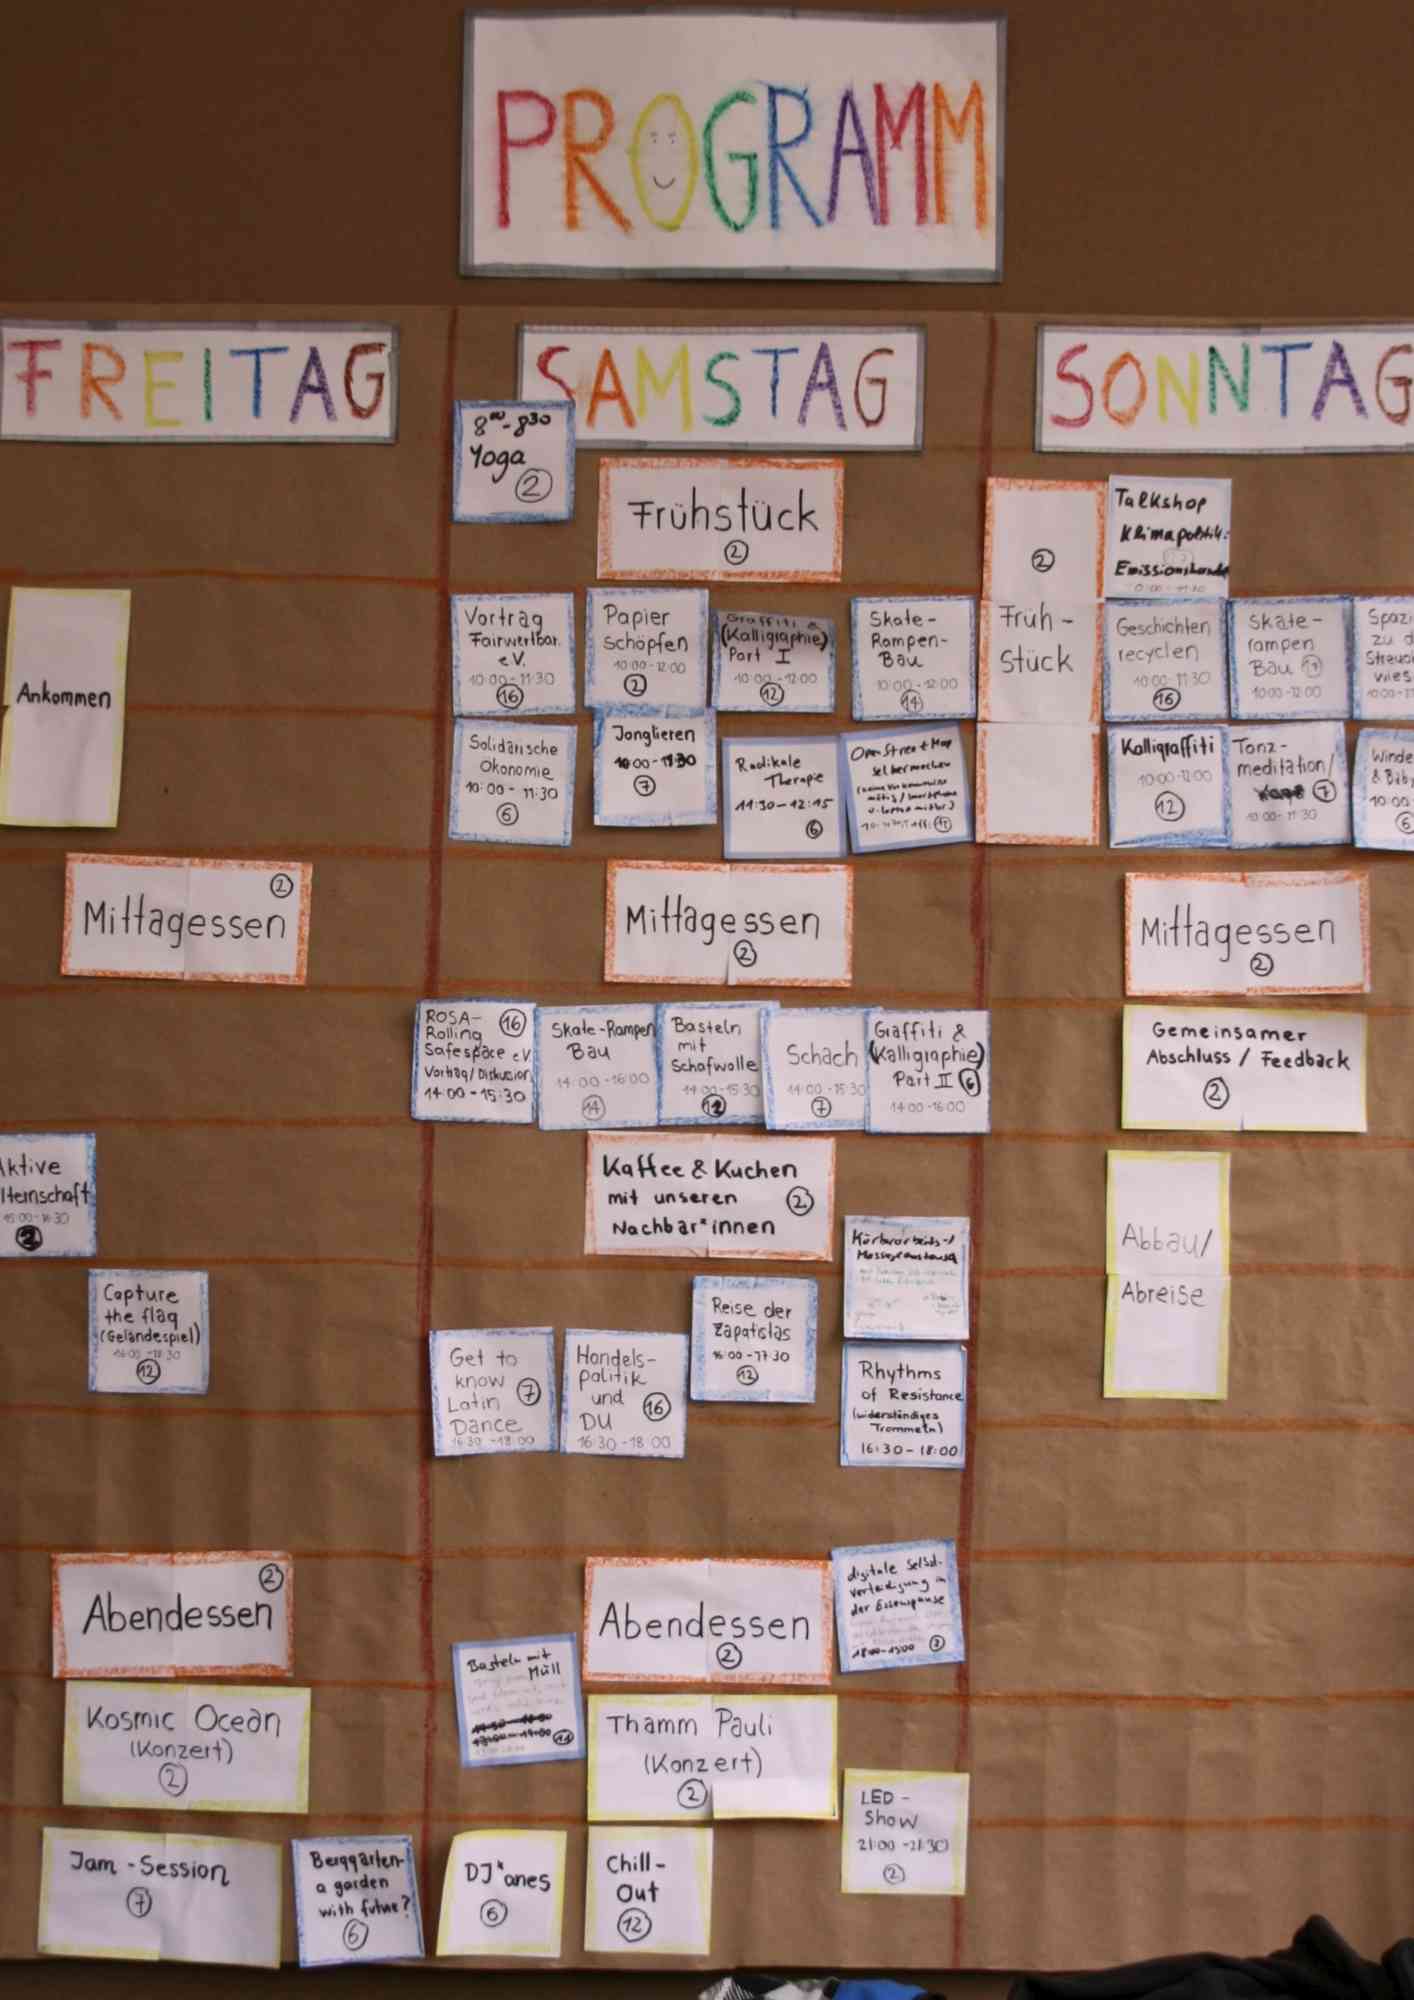 PROGRAMM
FREITAG
Ankommen
2
Mittagessen
Aktive
15:00-16:30
2
Capture
the flag
(Geländespiel)
16:00-17:30
12
2
Abendessen
Kosmic Ocean
(Konzert)
2
Jam-Session
7
Berggarten-
a garden
with future?
6
SAMSTAG
8⁰⁰-8³⁰
Yoga
2
Frühstück
2
Vortrag
Fairwertbar.
e.V.
10:00-11:30
16
Papier
schöpfen
10:00-12:00
2
Graffiti &
(Kalligraphie)
Part I
10:00-12:00
12
Skate-
Rampen-
Bau
10:00-12:00
14
Solidarische
Ökonomie
10:00-11:30
6
Jonglieren
10:00-11:30
7
Radikale
Therapie
11:30-12:15
6
OpenStreetMap
selbermachen
Mittagessen
2
ROSA-
Rolling
16
Safespace e.V
Vortrag/Diskussion
14:00-15:30
Skate-Rampen
Bau
14:00-16:00
14
Basteln
mit
Schafwolle
14:00-15:30
12
Schach
14:00-15:30
7
Graffiti &
(Kalligraphie)
Part II 6
14:00-16:00
Kaffee & Kuchen
mit unseren
2
Nachbar*innen
Get to
know
7
Latin
Dance
16:30-18:00
Handels-
politik
und
16
DU
16:30-18:00
Reise der
Zapatistas
16:00-17:30
12
Rhythms
of Resistance
(widerständiges
Trommeln)
16:30-18:00
Abendessen
2
digitale Selbst-
verteidigung in
der Essenspause
18:00-19:00
2
Basteln mit
Müll
Thamm Pauli
(Konzert)
2
LED-
Show
21:00-21:30
2
DJ*anes
6
Chill-
Out
12
SONNTAG
2
Früh-
stück
Talkshop
Klimapolitik:
Geschichten
recyclen
10:00-11:30
16
Skate-
rampen
Bau 14
10:00-12:00
Spazi
zu d
Kalligraffiti
10:00-12:00
12
Tanz-
meditation/
7
10:00-11:30
Winde
& Baby
10:00
6
Mittagessen
2
Gemeinsamer
Abschluss / Feedback
2
Abbau/
Abreise